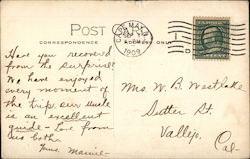 POST
CORRESPONDENCE
ADDRESS ONLY
1909
Have you recovered
from the surprise?
We have enjoyed
every moment of
the trip our uncle
is an excellent
guide - Love from
us both.
Yours, Mamie -
Mrs. W. B. Westlake
Sutter St.
Vallejo,
Cal.